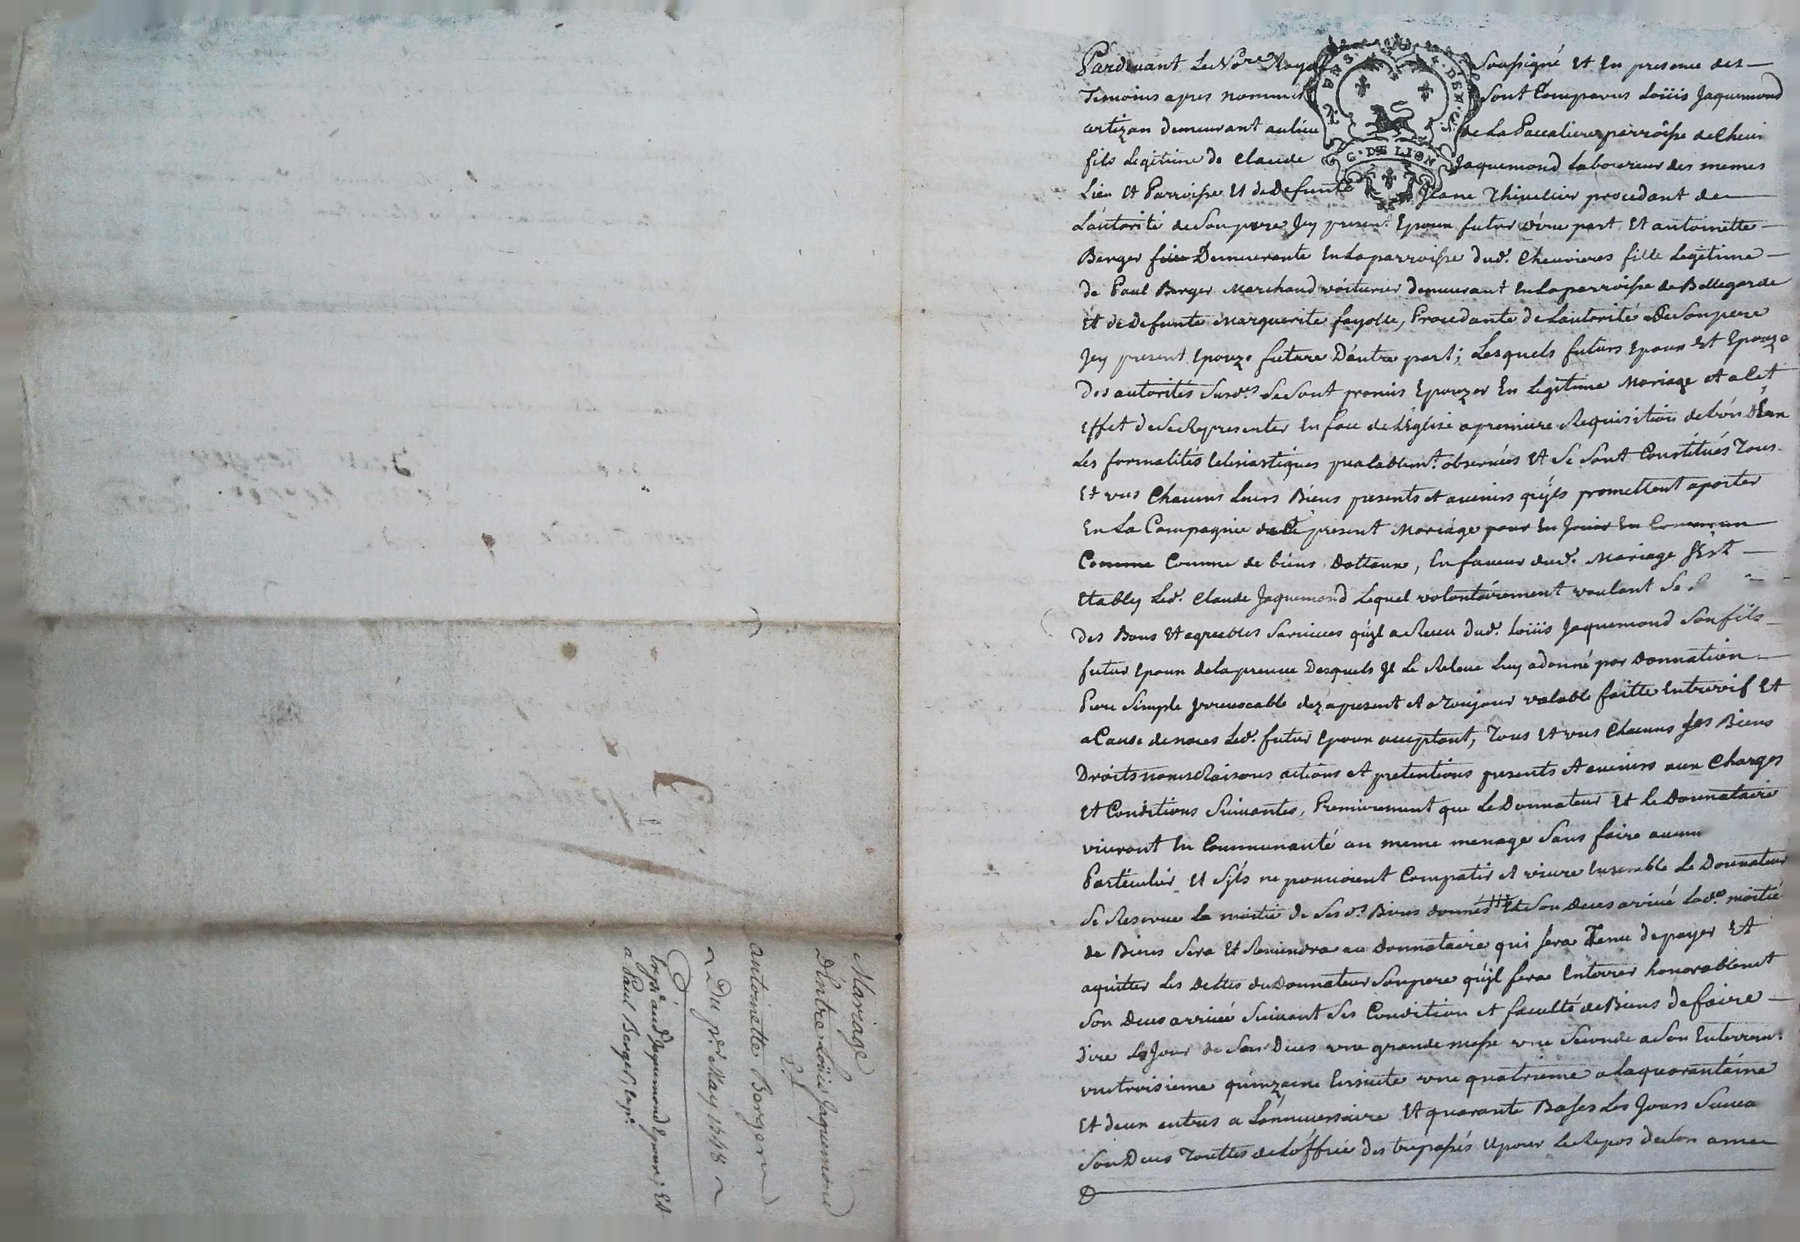 Pardevant Le No.re Royal Soussigné Et En presence des
Temoins apres nommés Sont Comparus Loüis Jaquemond
artizan demeurant au lieu de La Paccaliere parroisse de Chevri
fils Legitime de Claude Jaquemond Laboureur des memes
Lieu Et Parroisse Et de Defunte Jeane Thivelier procedant de
L'autorité de Son pere Jcy presen.t Epoux futur d'une part, Et antoinette
Berger fille Demeurante En La parroisse dud. Chevrieres fille Legitime
de Paul Berger Marchand voiturier demeurant En La parroisse de Bellegarde
Et de Defunte Marguerite fayolle, Procedante de L'autorité De Son pere
Jcy present Epouze future D'autre part; Lesquels futurs Epoux Et Epouze
Des autorités Susd.es Se Sont promis Epouzer En Legitime Mariage Et a Cet
Effet de Se Representer En face de L'Eglise a premiere Requisition de L'un D'Eux
Les formalités Eclesiastiques prealablem.t observées Et Se Sont Constitués Tous
Et uns Chacuns Leurs Biens presents et avenirs quils promettent aporter
En La Compagnie de Ce present Mariage pour En Jouir En Commun
Comme Comme de biens Dottaux, En faveur dud. Mariage S'Est
Etably Led. Claude Jaquemond Lequel volontairement voulant Se
des Bons Et agreables Services qu'jl a Receu dud. Loüis Jaquemond Son fils
futur Epoux de La preuve Desquels Jl Le Releve Luy a donné par Donnation
Pure Simple Jrrevocable dez a present et a Toujour valable faitte Entrevif Et
a Cause de noces Led. futur Epoux acceptant, Tous Et uns Chacuns Ses Biens
Droits noms Raisons actions et pretentions presents et avenirs aux Charges
Et Conditions Suivantes, Premierement que Le Donnateur Et Le Donnataire
vivront En Communauté au meme menage Sans faire aucun
Particulier Et S'jls ne pouvoient Compatir et vivre Ensemble Le Donnateur
Se Reserve La moitié de Ses d.s Biens donnés Et Son Deces arrivé Lad.e moitié
de Biens Sera Et Reviendra au Donnataire qui Sera Tenu de payer Et
aquitter Les Dettes du Donnateur Son pere qu'jl fera Enterrer honorablem.t
Son Deces arrivé Suivant Ses Condition et faculté de Biens de faire
dire Le Jour de Son Deces une grande messe une Seconde a Son Enterrem.t
une troisieme quinzaine Ensuite une quatrieme a La quarantaine
Et deux autres a L'anniversaire Et quarante Basses Les Jours
Son Deces Touttes de L'office des trepassés Et pour Le Repos de Son ame
Mariage
D'Entre Loüis Jaquemond
Et
antoinette Berger
Du p.er May 1748
Exp.é aud. Jaquemond Epoux; Et
a Paul Berger, Exp.é